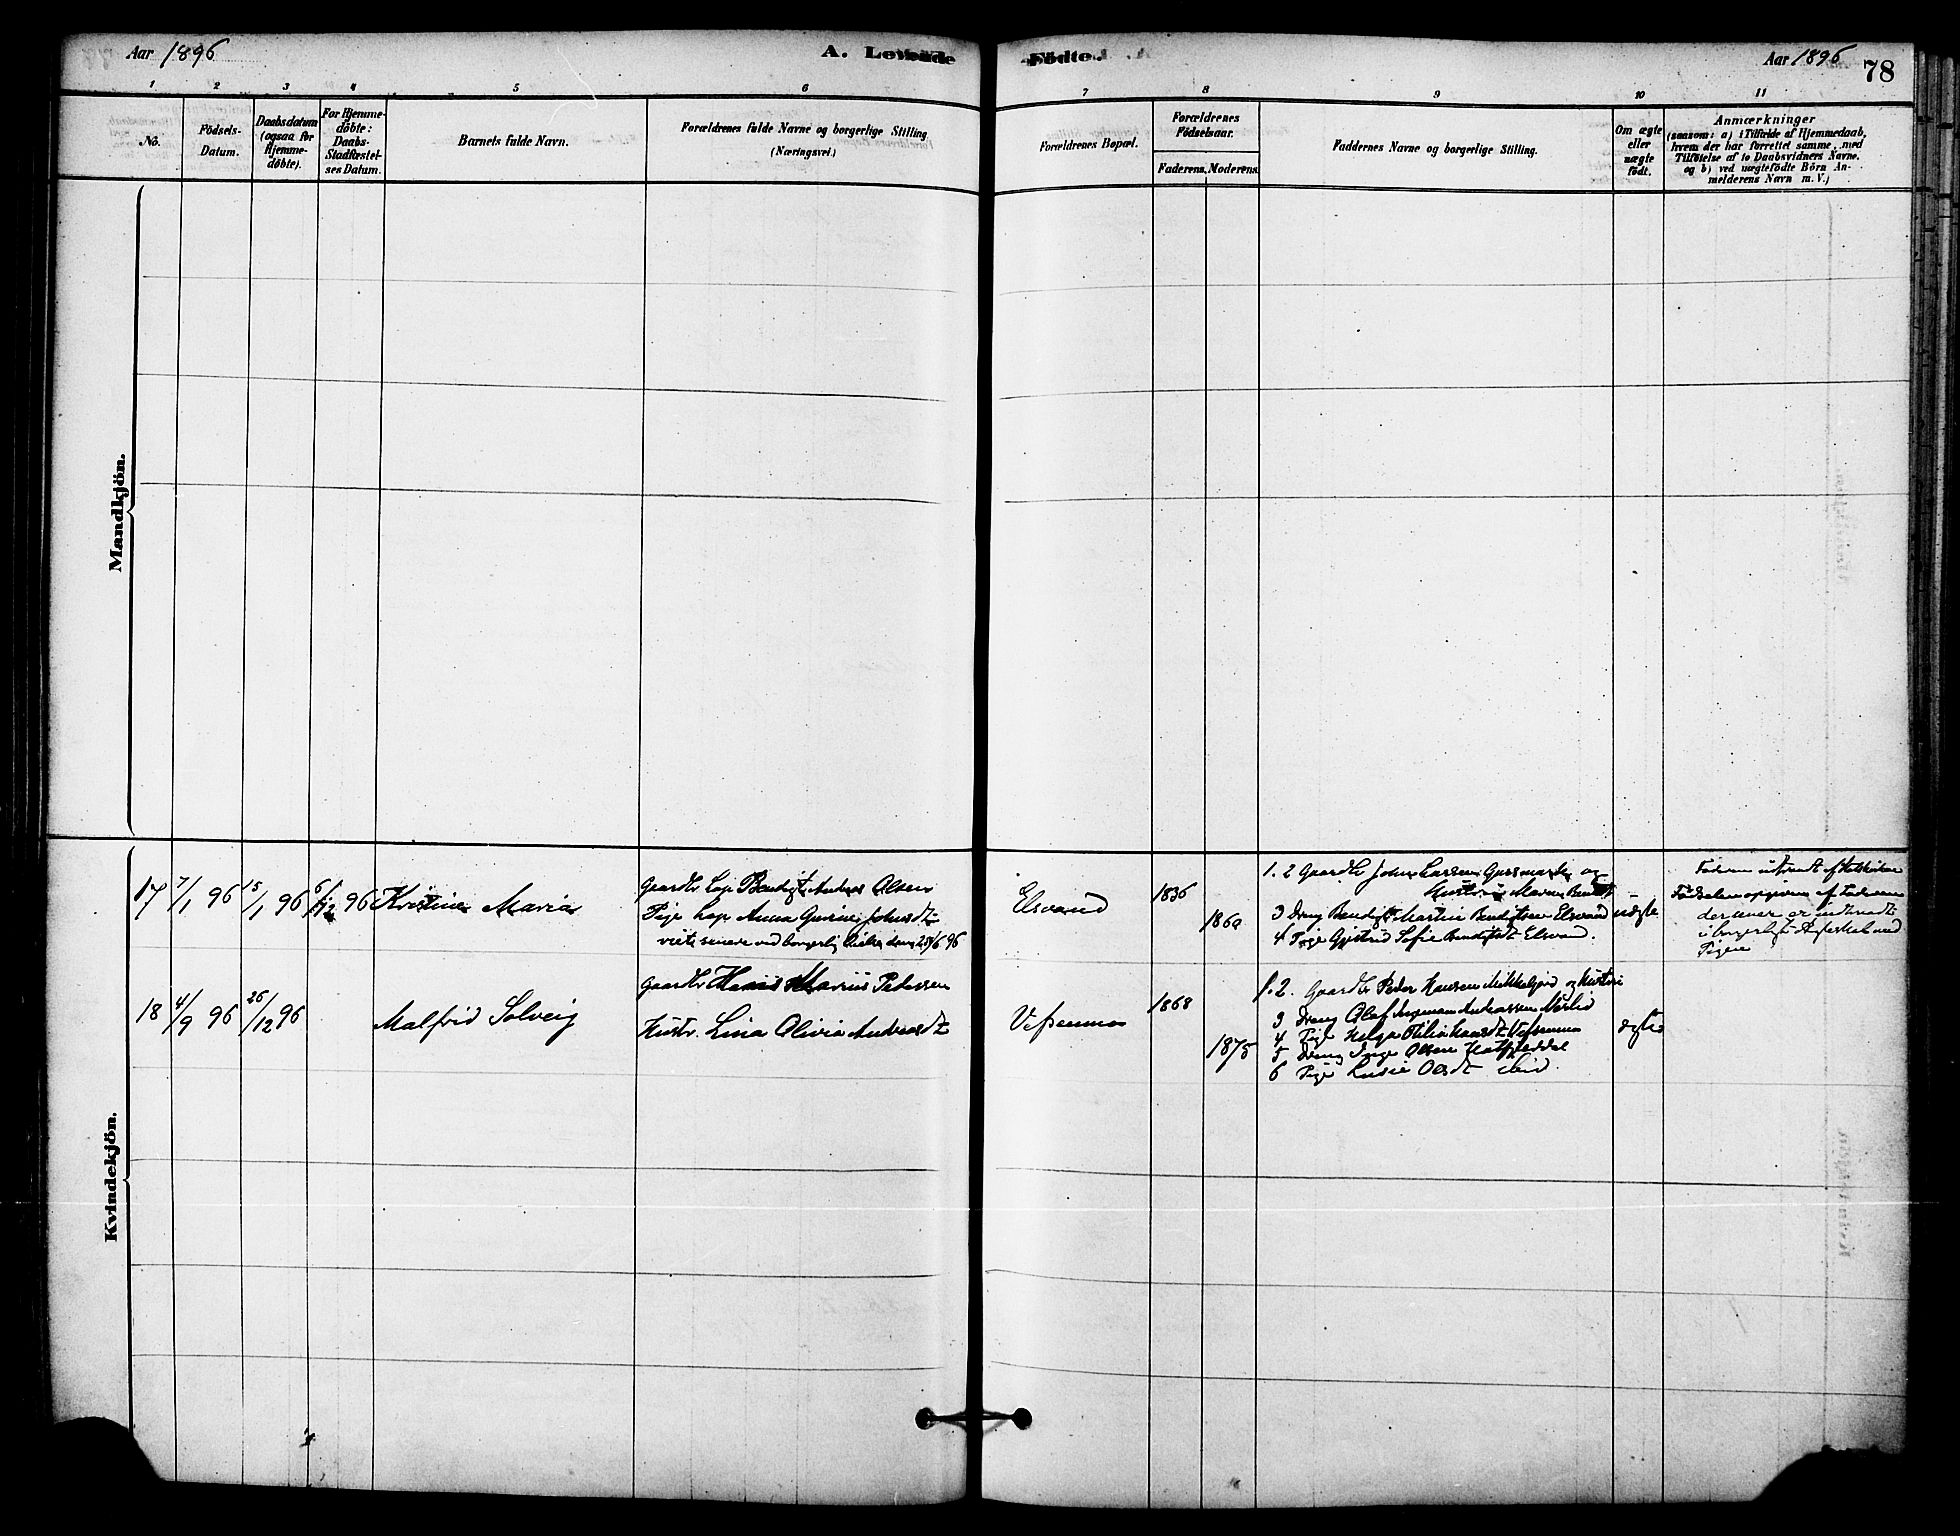 Aar 1896
A. Levende
Fødte.
Aar 1896
78
1
2
3
4
5
6
7
8
9
10
11
No.
Födsels-
Datum.
Daabsdatum
(ogsaa for
Hjemme-
døbte).
For Hjemme-
døbte:
Daabs-
Stadfæstel-
ses Datum.
Barnets fulde Navn.
Forældrenes fulde Navne og borgerlige Stilling.
(Næringsvei.)
Forældrenes Bopæl.
Forældrenes
Födselsaar.
Faderens. Moderens.
Faddernes Navne og borgerlige Stilling.
Om ægte
eller
uægte
født.
Anmærkninger
(saasom: a) i Tilfælde af Hjemmedaab,
hvem der har forrettet samme, med
Tilföielse af to Daabsvidners Navne,
og b) ved uægtefödte Börn An-
melderens Navn m. V.)
Mandkjön.
Kvindekjön.
17
7/1 96
15/1 96
6/12 96
Kristine Maria
Gaardbr Lap Bendigt Andreas Olsen
Pige Lap Anna Johnsdt
viet senere ved borgerlig
Elsvand
1836
1860
1. 2 Gaardbr John Larsen og
Hustru Maren
3 Dreng Bendigt Martin Bendigtsen Elsvand
4 Pige Sofie Bendigtsdt Elsvand.
uægte
Faderen udtraadt af Statskirken
Fødselen opgiven af Faderen
der er indtraadt
i borgerligt Ægteskab med
Pigen
18
4/9 96
26/12 96
Malfrid Solveig
Gaardbr Hans Marius Pedersen
Hustr. Lina Olivia Andreasdt
Vefsenmo
1868
1875
1. 2. Gaardbr Peder Hansen Mikkeljord og Hustru
3 Dreng Olaf Ingeman Andreassen
4 Pige Helga Otilia Hansdt Vefsenmo
5 Dreng Inge Olsen Hatfjelddal
6 Pige Lusie Olsdt ibid.
ægte